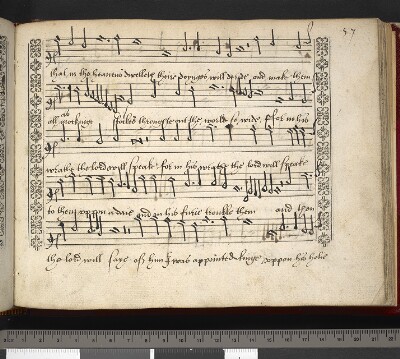 57
that in the heavens dwelleth their doyngs will deride and make them
all as mockinge stokes throughe out the world so wide. For in his
wrathe the lord will speake for in his wrathe the lord will speake
to them vppon a daie and in his furie trouble them and than
the lord will saye of him I was appointed kinge vppon his holie